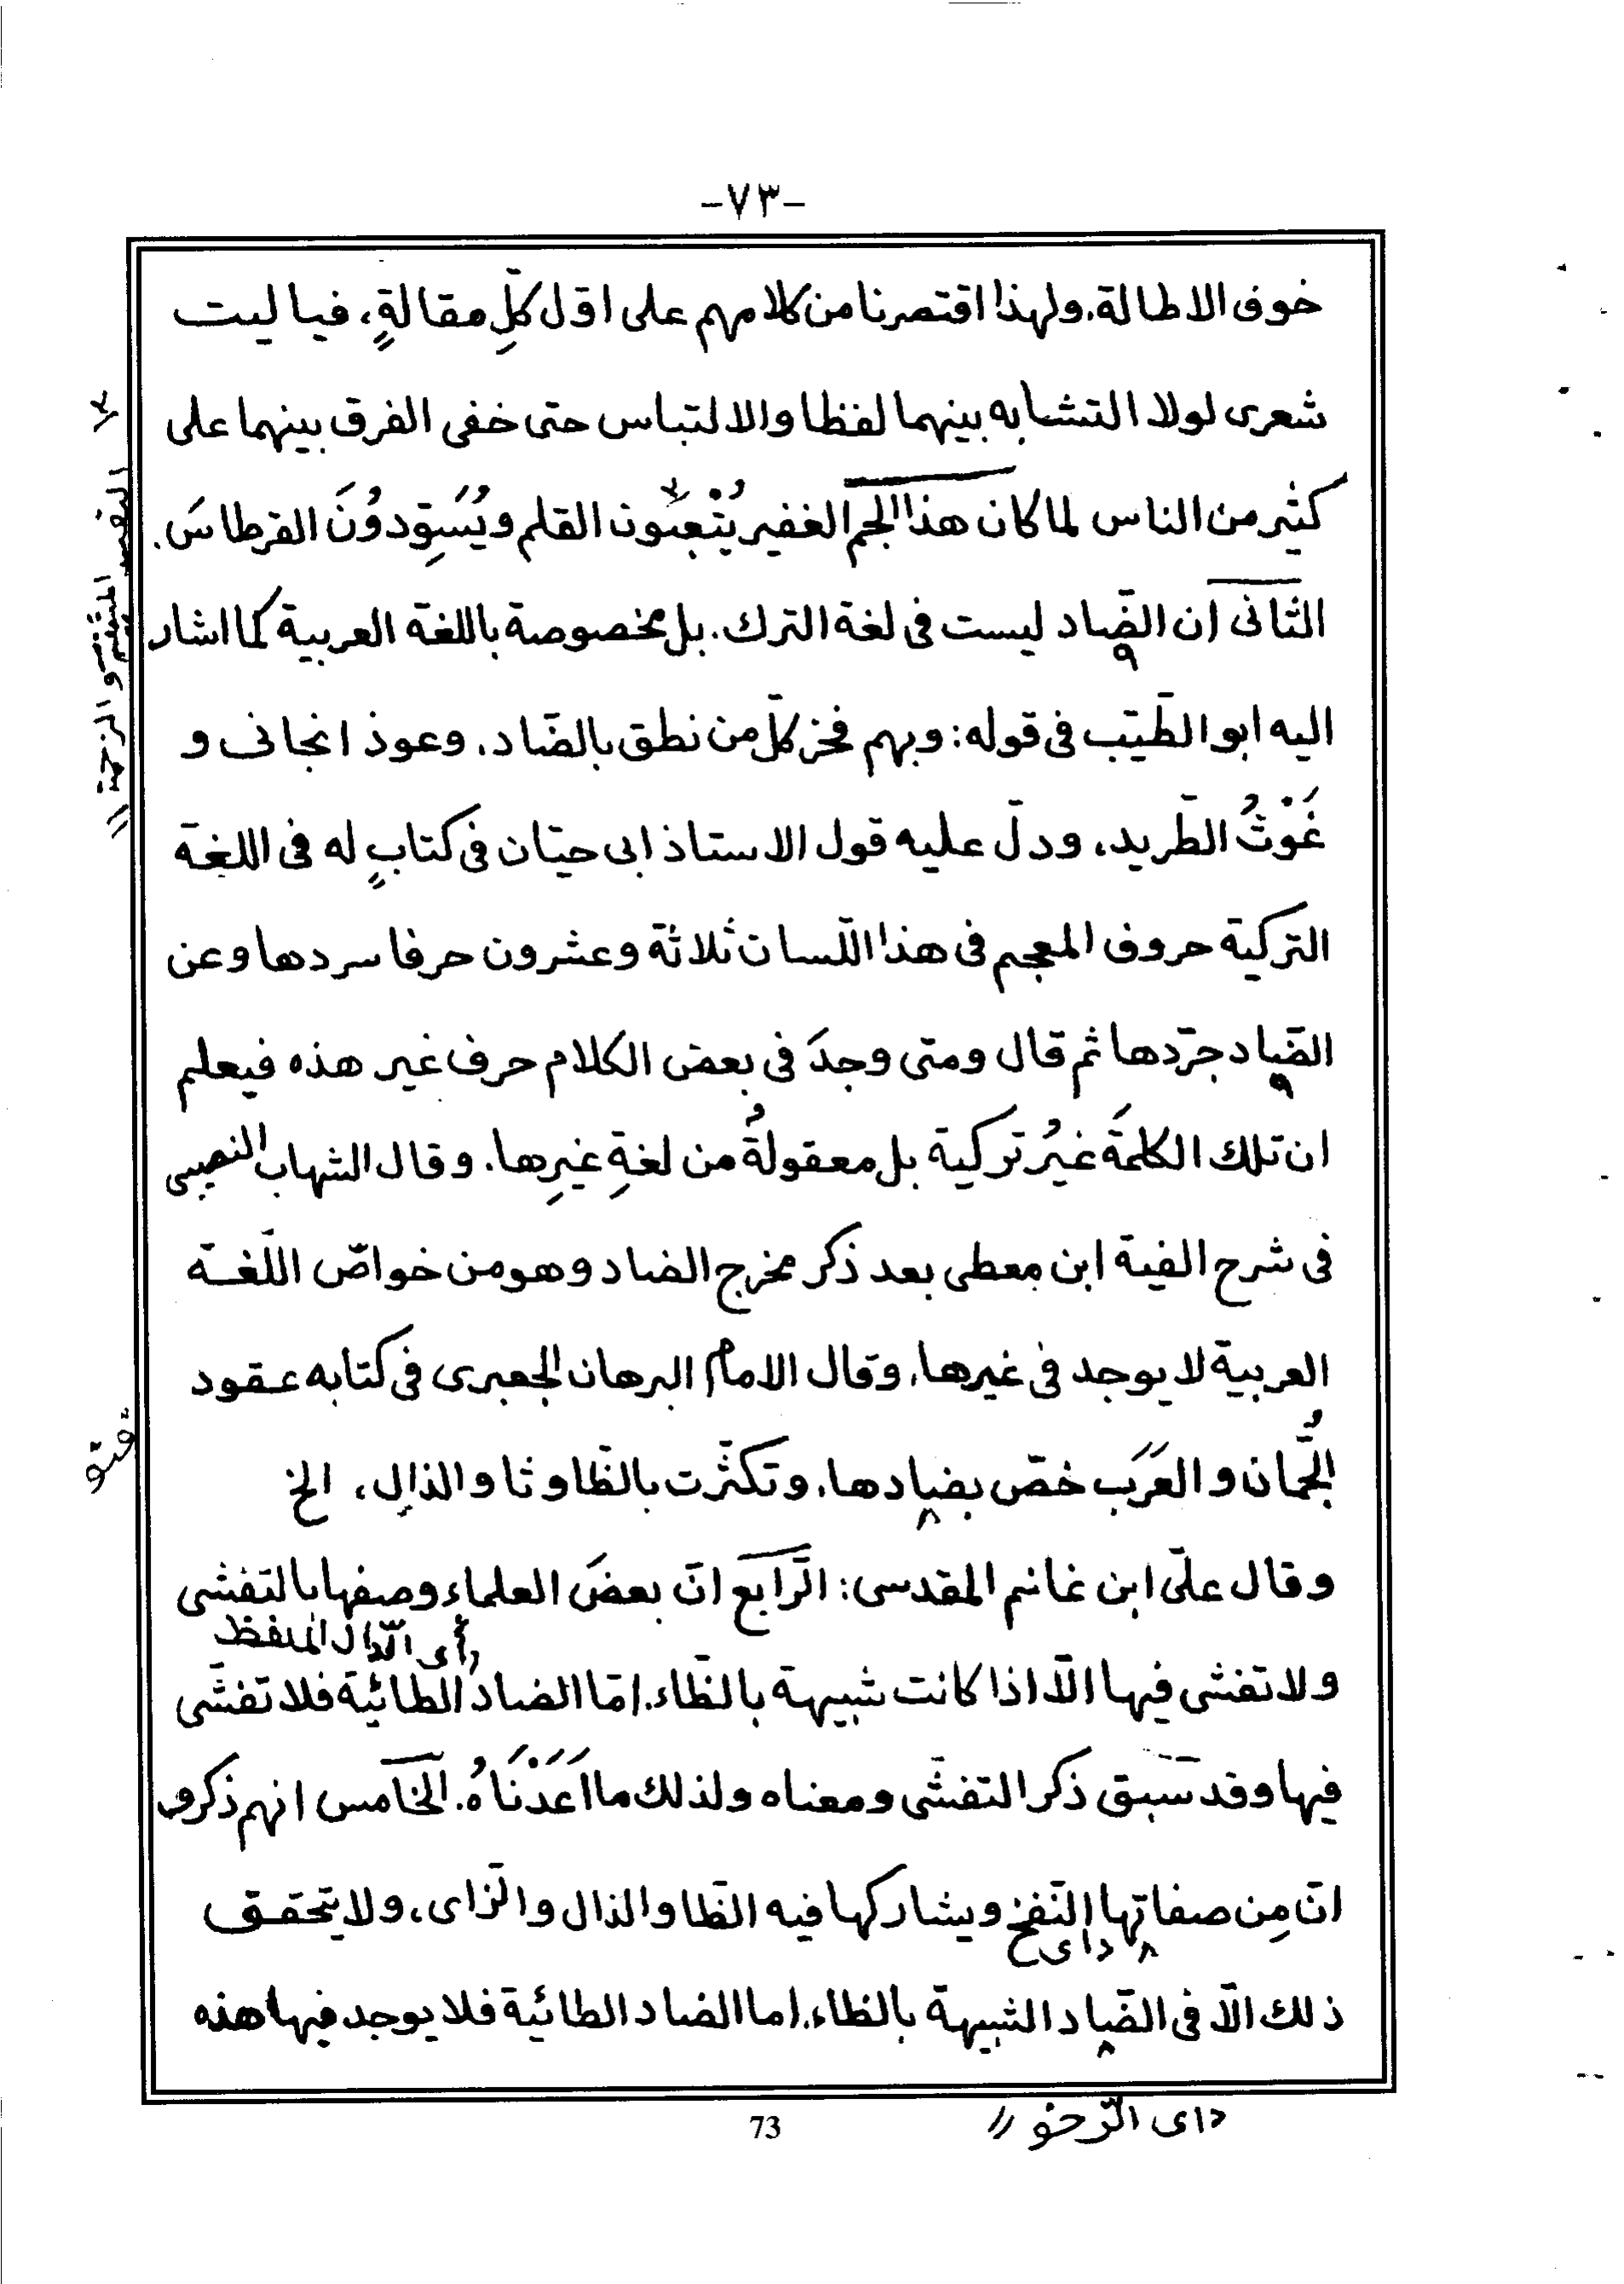 -٧٣-
خوف الاطالة، ولهذا اقتصرنا من كلامهم على اقل كلِّ مقالةٍ، فيا ليت
شعرى لولا التشابه بينهما لفظا والالتباس حتى خفى الفرق بينهما على
كثير من الناس لما كان هذا الجم الغفير يُتْعِبُون القلم ويُسَوِّدوُنَ القرطاسَ.
الثانى ان الضّاد ليست فى لغة الترك. بل مخصوصة باللغة العربية كما اشار
اليه ابو الطّيّب فى قوله: وبهم فخر كلّ من نطق بالضّاد، وعوذ انجانى و
غَوْثُ الطّريد، ودلّ عليه قول الاستاذ ابى حيّان فى كتابٍ له فى اللغة
التركية حروف المعجم فى هذا اللّسان ثلاثة وعشرون حرفا سردها وعن
الضّاد جرّدها ثم قال ومتى وجدَ فى بعض الكلام حرف غير هذه فيعلم
ان تلك الكلمةَ غيرُ تركية بل معقولةُ من لغةِ غيرِها. وقال الشهاب النصيبى
فى شرح الفية ابن معطى بعد ذكر مخرج الضاد وهو من خواصّ اللّغة
العربية لا يوجد فى غيرها، وقال الامام البرهان الجعبرى فى كتابه عقود
الجُّمان والعَرَب خصّ بضادها، وتكثّرت بالظّا وثا والذال، الخ
وقال علىّ ابن غانم المقدسى: الرّابع انّ بعضَ العلماء وصفها بالتفشى
(أى الدّال المفظّ
ولا تفشى فيها الّا اذا كانت شبيهة بالظّاء. امّا الضاد الطائية فلا تفشّى
فيها وقد سبق ذكر التفشّى ومعناه ولذلك ما اَعَدْنَاهُ. الخامس انهم ذكروا
انّ مِن صفاتها النّفخ ويشاركها فيه الظّا والذال والزّاى، ولا يتحقق
داى
ذلك الّا فى الضّاد الشبيهة بالظاء. اما الضاد الطائية فلا يوجد فيها هذه
داى الرّخو //
73